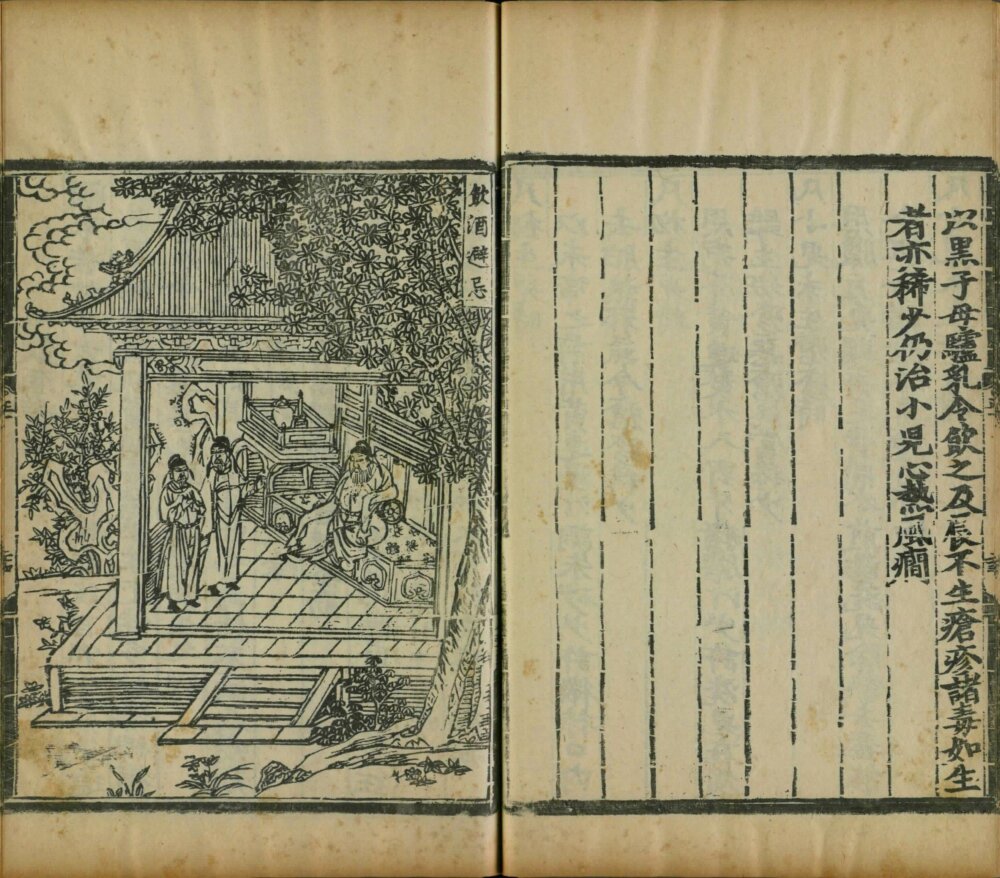 以黑子母驢乳令飲之及長不生瘡疹諸毒如生
者亦稀少仍治小兒心熱風癇
飲酒避忌